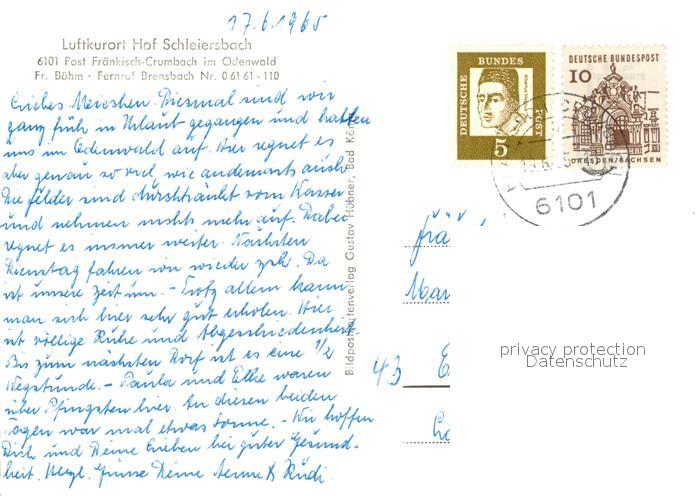 17.6.1965
Luftkurort Hof Schleiersbach
6101 Post Fränkisch-Crumbach im Odenwald
Fr. Böhm · Fernruf Brensbach Nr. 0 61 61 - 110
Liebes Meieschen. Diesmal sind wir
ganz früh in Urlaub gegangen und halten
uns im Odenwald auf. Hier regnet es
aber genau so viel, wie andernorts auch.
Die Felder sind durchtränkt vom Wasser
und nehmen nichts mehr auf. Dabei
regnet es immer weiter. Nächsten
Dienstag fahren wir wieder zrk. Da
ist unsere Zeit um. - Trotz allem kann
man sich hier sehr gut erholen. Hier
ist völlige Ruhe und Abgeschiedenheit.
Bis zum nächsten Dorf ist es eine 1/2
Wegstunde. - Paula und Elke waren
über Pfingsten hier. An diesen beiden
Tagen war mal etwas Sonne. - Wir hoffen
Dich und Deine Lieben bei guter Gesund-
heit. Herzl. Grüsse Deine Aenne & Rudi.
Bildpostkartenverlag Gustav Hübner, Bad
DEUTSCHE BUNDESPOST
5
DEUTSCHE BUNDESPOST
10
DRESDEN/SACHSEN
6101
Frä
Mar
43
privacy protection
Datenschutz